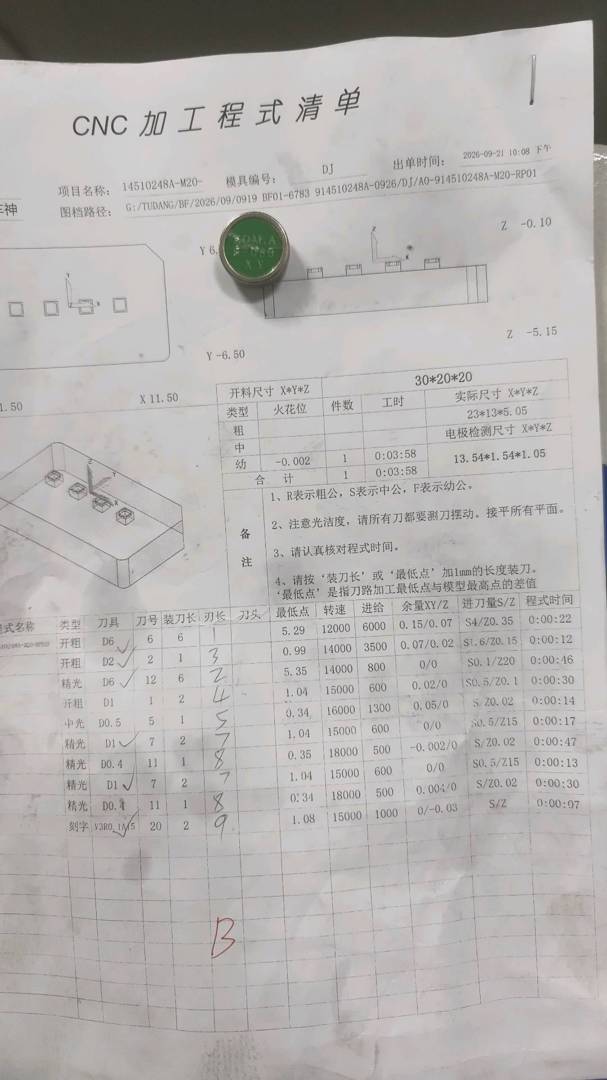 CNC 加工程式清单
项目名称: 14510248A-M20- 模具编号: DJ 出单时间: 2026-09-21 10:08 下午
车神 图档路径: G:/TUDANG/BF/2026/09/0919 BF01-6783 914510248A-0926/DJ/A0-914510248A-M20-RP01
Y 6. Z -0.10
Y -6.50 Z -5.15
1.50 X 11.50
开料尺寸 X*Y*Z 30*20*20
类型 火花位 件数 工时 实际尺寸 X*Y*Z
粗 23*13*5.05
中 电极检测尺寸 X*Y*Z
幼 -0.002 1 0:03:58 13.54*1.54*1.05
合 计 1 0:03:58
备注
1、R表示粗公，S表示中公，F表示幼公。
2、注意光洁度，请所有刀都要测刀摆动。接平所有平面。
3、请认真核对程式时间。
4、请按‘装刀长’或‘最低点’加1mm的长度装刀。
‘最低点’是指刀路加工最低点与模型最高点的差值
程式名称 类型 刀具 刀号 装刀长 刃长 刀头 最低点 转速 进给 余量XY/Z 进刀量S/Z 程式时间
开粗 D6 6 6 1 5.29 12000 6000 0.15/0.07 S4/Z0.35 0:00:22
开粗 D2 2 1 3 0.99 14000 3500 0.07/0.02 S1.6/Z0.15 0:00:12
精光 D6 12 6 2 5.35 14000 800 0/0 S0.1/Z20 0:00:46
开粗 D1 1 2 4 1.04 15000 600 0.02/0 S0.5/Z0.1 0:00:30
中光 D0.5 5 1 5 0.34 16000 1300 0.05/0 S/Z0.02 0:00:14
精光 D1 7 2 7 1.04 15000 600 0/0 S0.5/Z15 0:00:17
精光 D0.4 11 1 8 0.35 18000 500 -0.002/0 S/Z0.02 0:00:47
精光 D1 7 2 7 1.04 15000 600 0/0 S0.5/Z15 0:00:13
精光 D0.4 11 1 8 0.34 18000 500 0.004/0 S/Z0.02 0:00:30
刻字 20 2 9 1.08 15000 1000 0/-0.03 S/Z 0:00:07
B